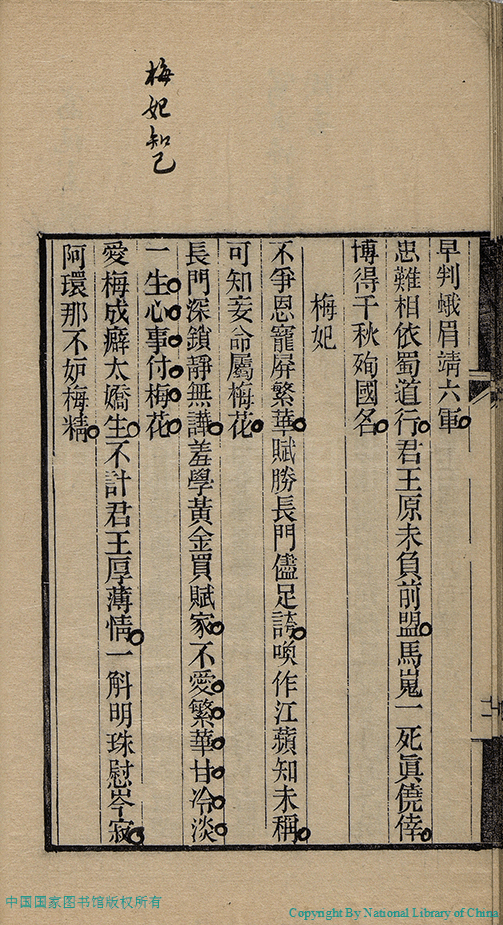 梅妃知己
早判蛾眉靖六軍
患難相依蜀道行君王原未負前盟馬嵬一死眞僥倖
博得千秋殉國名
梅妃
不爭恩寵屛繁華賦勝長門儘足誇喚作江蘋知未稱
可知妾命屬梅花
長門深鎖靜無譁羞學黃金買賦家不愛繁華甘冷淡
一生心事付梅花
愛梅成癖太嬌生不計君王厚薄情一斛明珠慰岑寂
阿環那不妒梅精
中国国家图书馆版权所有
Copyright By National Library of China